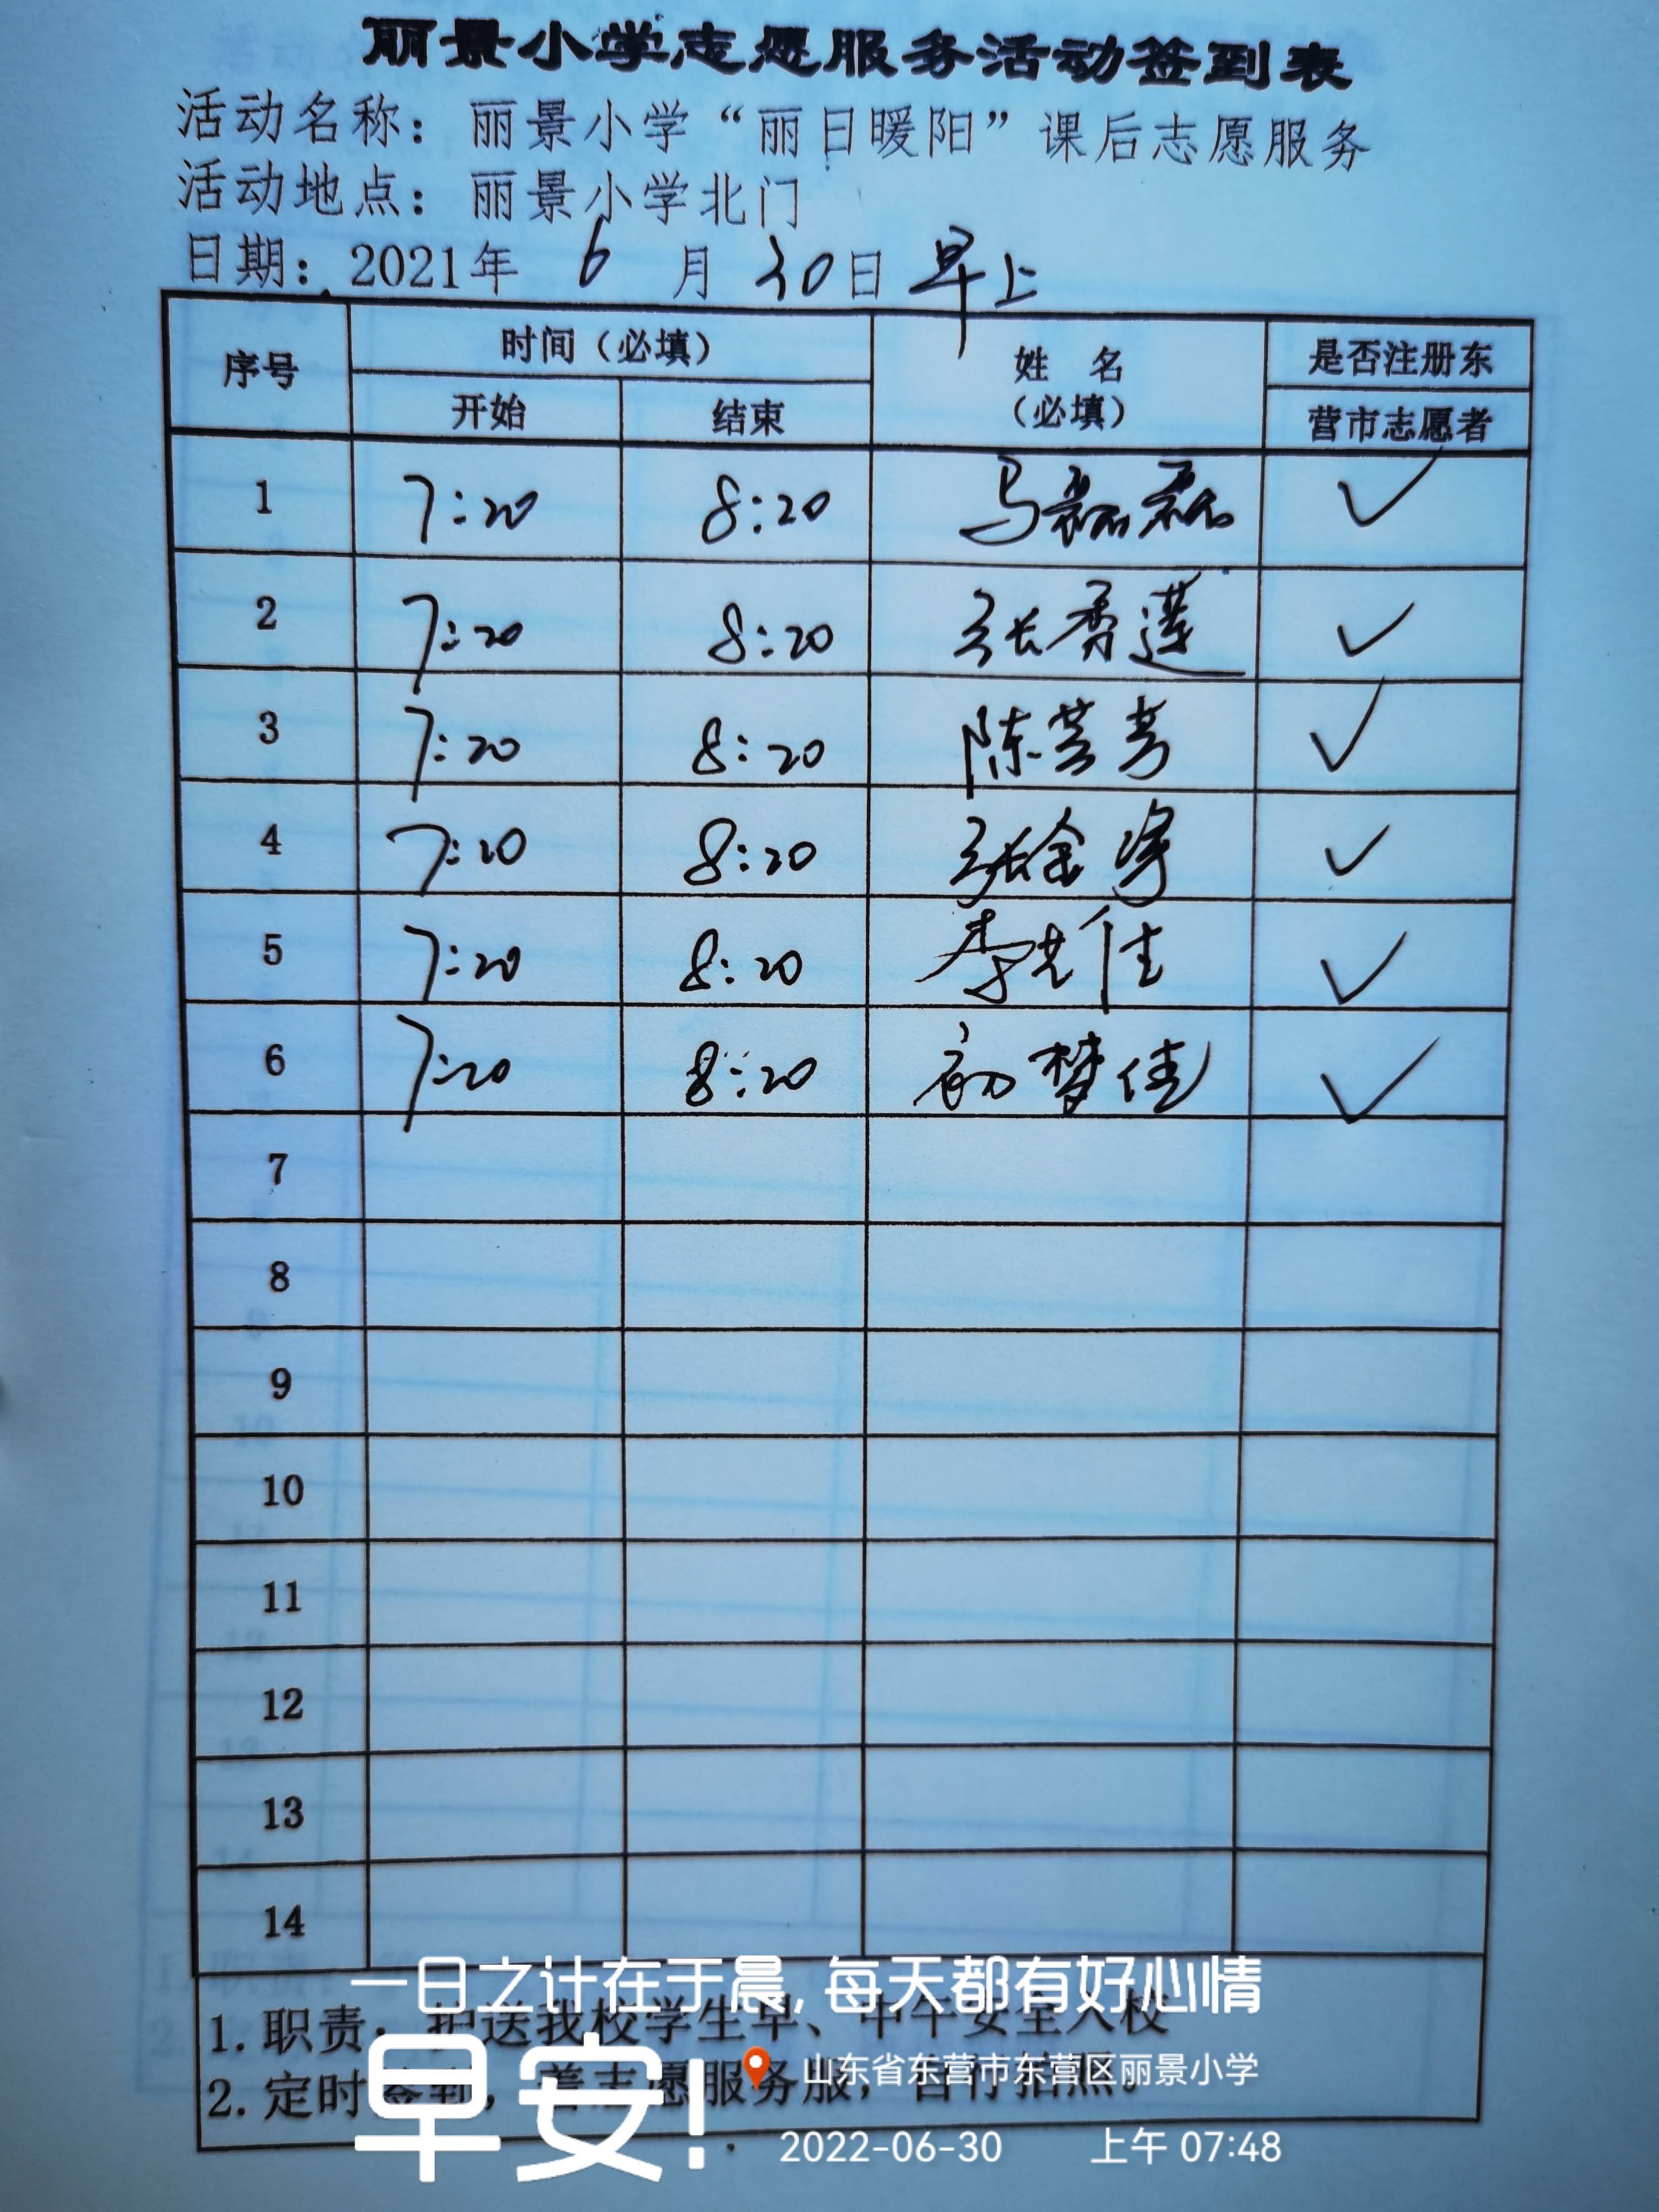 丽景小学志愿服务活动签到表
活动名称：丽景小学“丽日暖阳”课后志愿服务
活动地点：丽景小学北门
日期：2021年 6 月 30日 早上
序号 时间（必填） 姓 名（必填） 是否注册东营市志愿者
开始 结束
1 7:20 8:20 马磊磊 ✓
2 7:20 8:20 张秀莲 ✓
3 7:20 8:20 陈芸芳 ✓
4 7:20 8:20 张金 ✓
5 7:20 8:20 李 佳 ✓
6 7:20 8:20 初梦佳 ✓
7
8
9
10
11
12
13
14
1.职责：护送我校学生早、中午安全入校
2.定时签到，着志愿服务服，自行拍照。
一日之计在于晨，每天都有好心情
早安！
山东省东营市东营区丽景小学
2022-06-30 上午 07:48